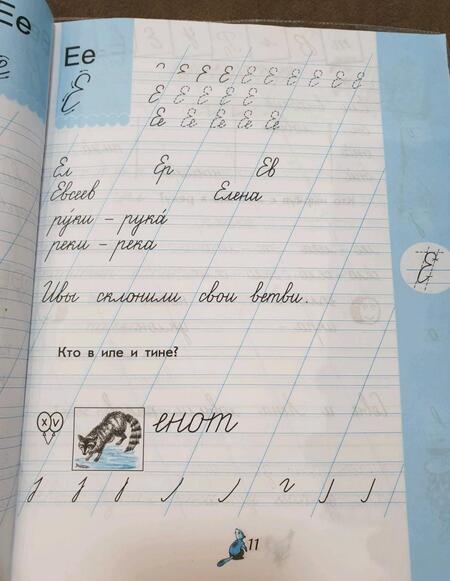 Ее
Ее
Е
Е Е Е Е Е Е Е Е Е
Е Е Е Е Е
Ее Ее Ее Ее Ее
Ел Ер Ев
Евсеев Елена
ру́ки – рука́
реки – река
Ивы склонили свои ветви.
Кто в иле и тине?
х v
енот
11
Е